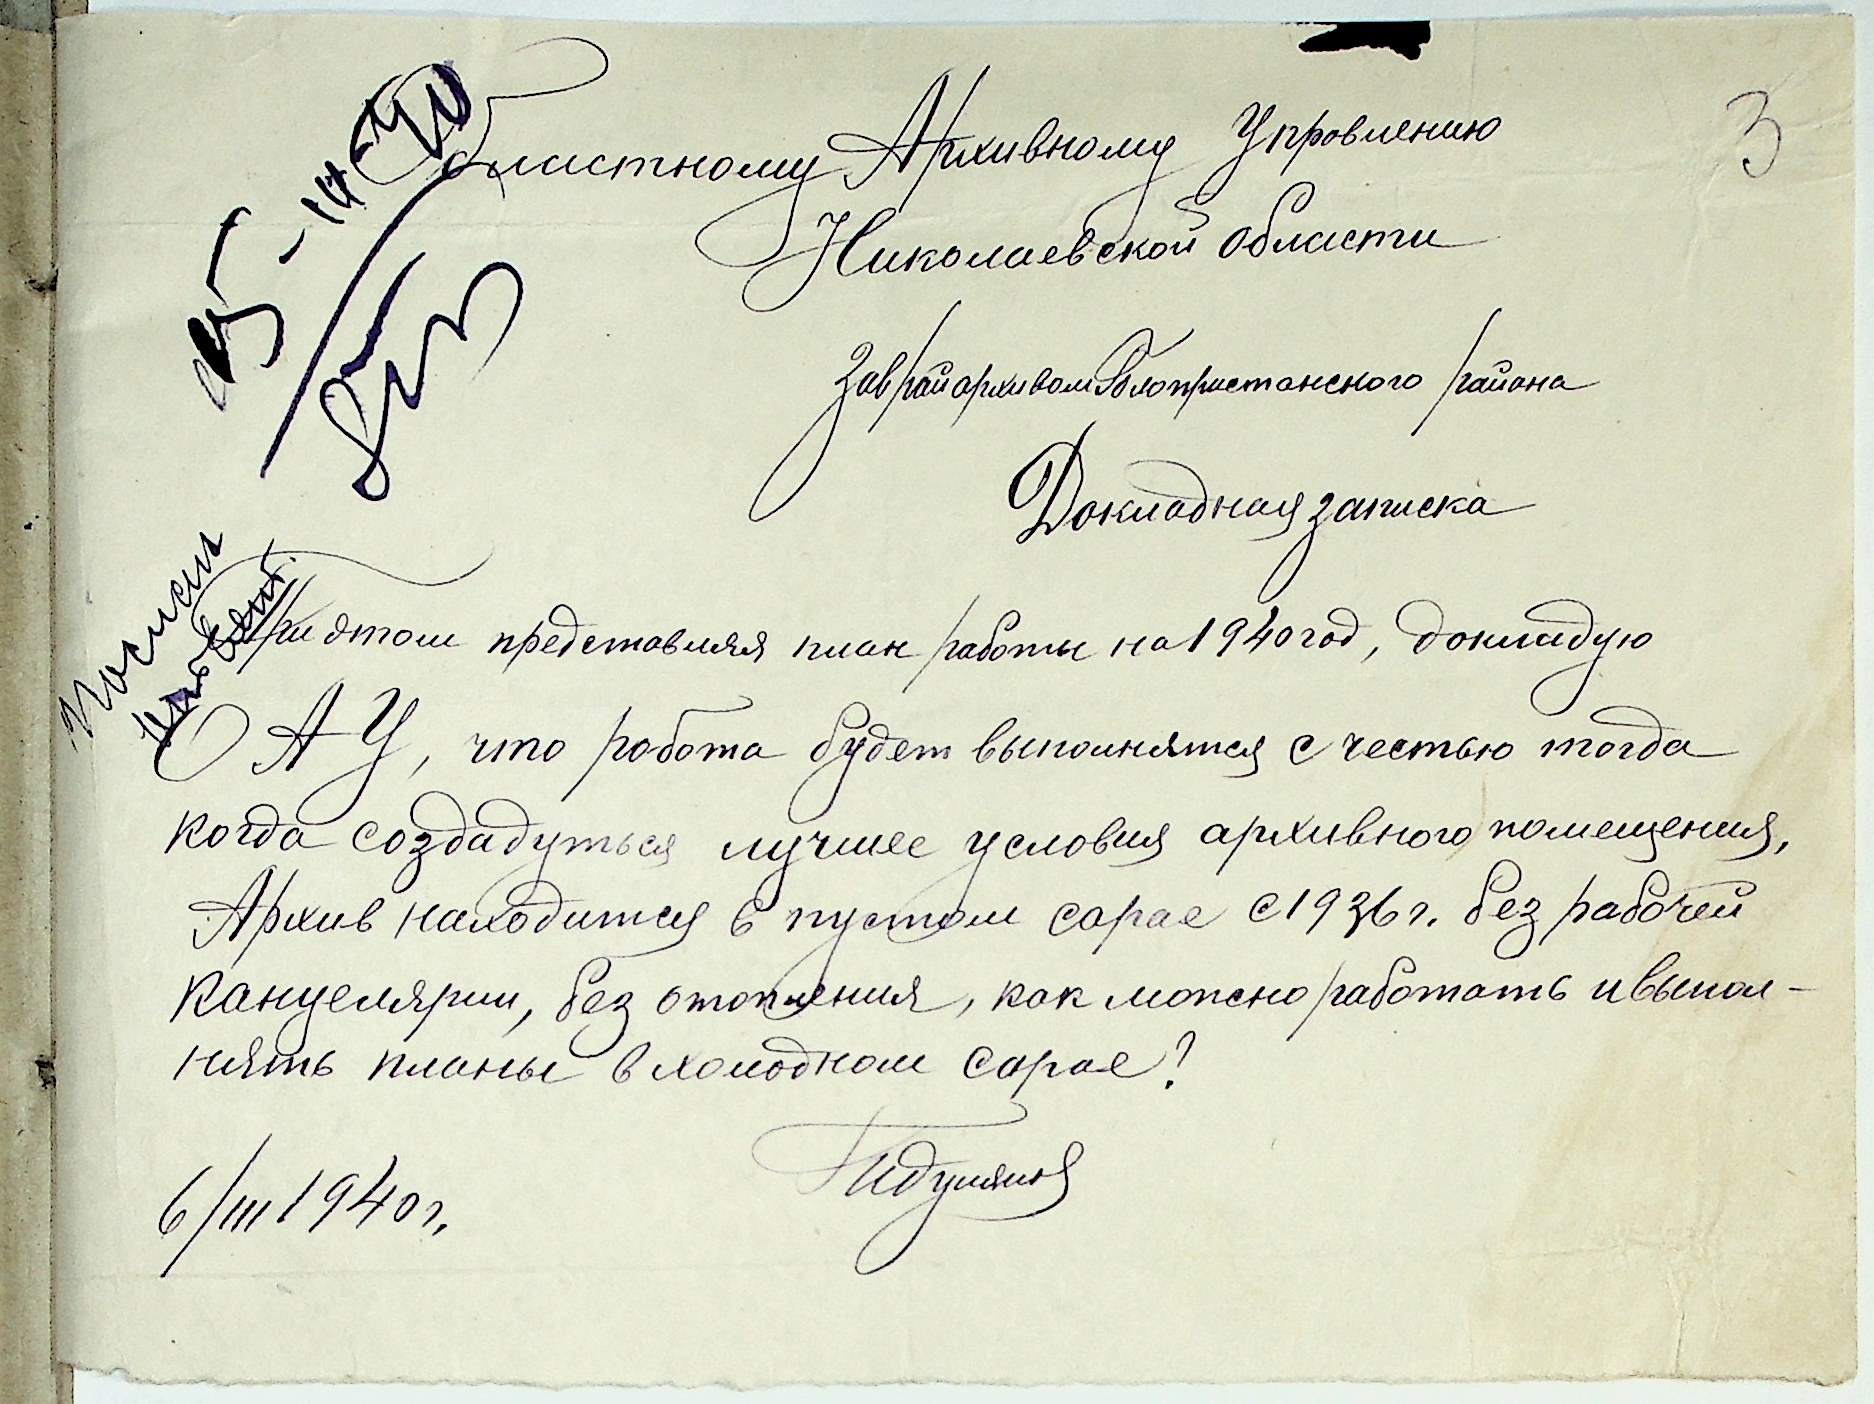 3
Областному Архивному Управлению
Николаевской области
Зав райархивом Голопристанского района
Докладная записка
При этом представляя план работы на 1940 год, докладую
ОАУ, что робота будет выполнятся с честью тогда
когда создадуться лучшее условия архивного помещения,
Архив находится в пустом сарае с 1936 г. без рабочей
канцелярии, без отопления, как можно работать и выпол-
нять планы в холодном сарае?
6/III 1940 г.
15-III-40